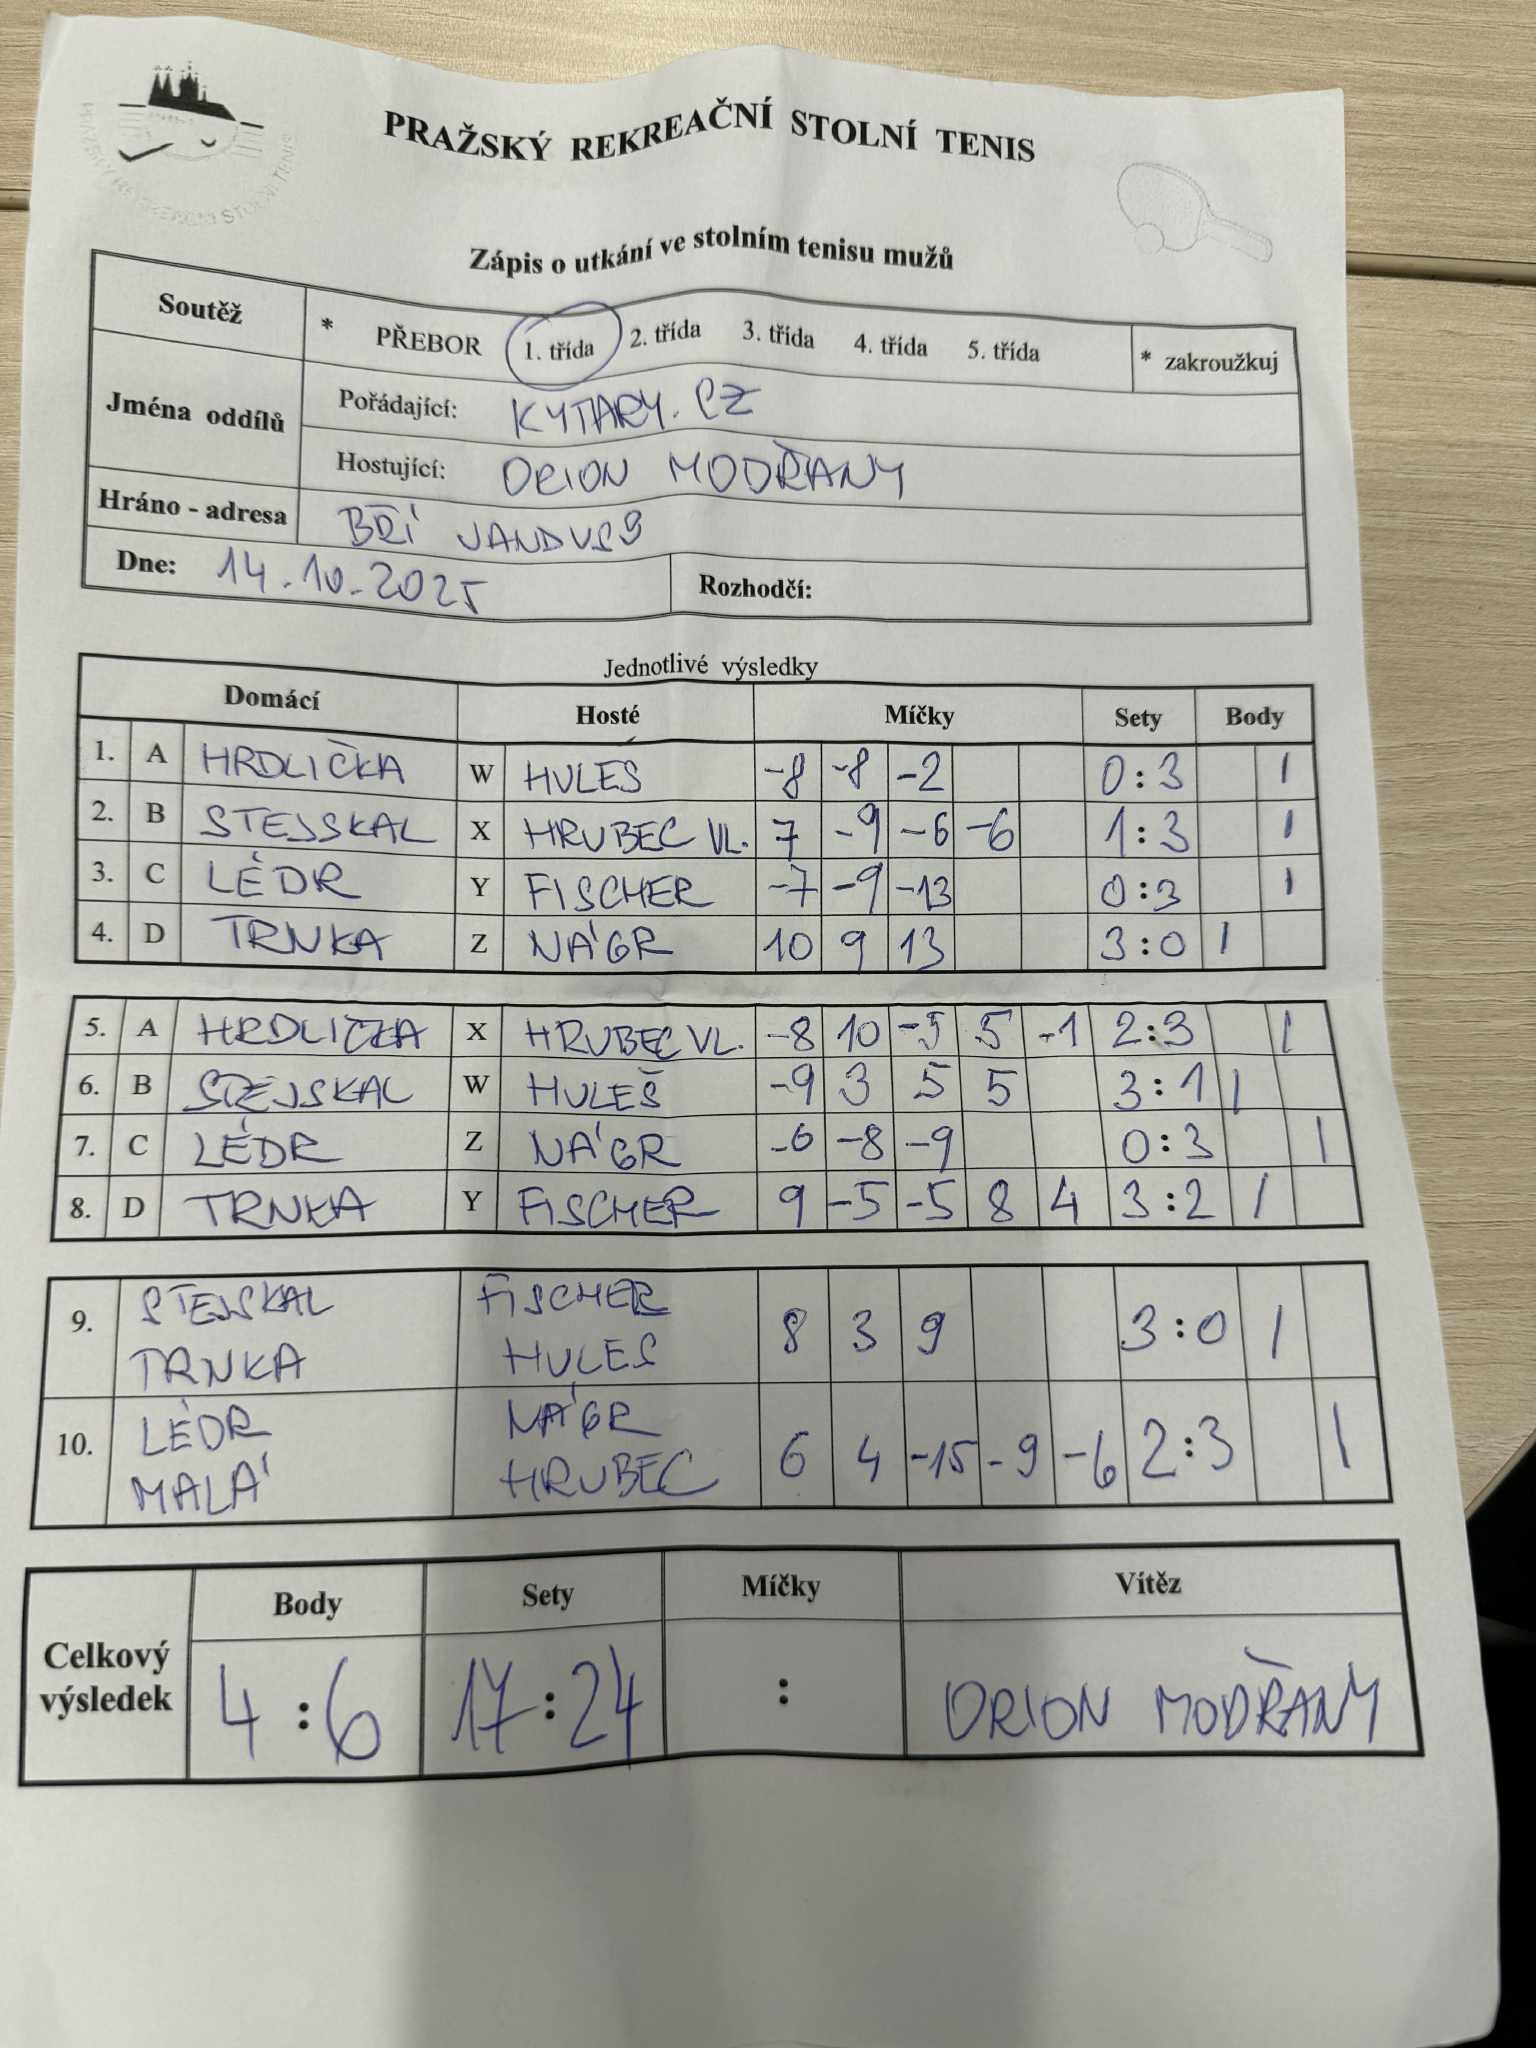 PRAŽSKÝ REKREAČNÍ STOLNÍ TENIS
Zápis o utkání ve stolním tenisu mužů
Soutěž * PŘEBOR 1. třída 2. třída 3. třída 4. třída 5. třída * zakroužkuj
Jména oddílů
Pořádající: KYTARY.CZ
Hostující: ORION MODŘANY
Hráno - adresa BŘÍ JANDUS 9
Dne: 14.10.2025 Rozhodčí:
Jednotlivé výsledky
Domácí Hosté Míčky Sety Body
1. A HRDLIČKA W HULEŠ -8 -8 -2 0:3 1
2. B STEJSKAL X HRUBEC VL. 7 -9 -6 -6 1:3 1
3. C LÉDR Y FISCHER -7 -9 -13 0:3 1
4. D TRNKA Z NÁGR 10 9 13 3:0 1
5. A HRDLIČKA X HRUBEC VL. -8 10 -5 5 -1 2:3 1
6. B STEJSKAL W HULEŠ -9 3 5 5 3:1 1
7. C LÉDR Z NÁGR -6 -8 -9 0:3 1
8. D TRNKA Y FISCHER 9 -5 -5 8 4 3:2 1
STEJSKAL FISCHER
9. 8 3 9 3:0 1
TRNKA HULES
LÉDR NÁGR
10. 6 4 -15 -9 -6 2:3 1
MALÁ HRUBEC
Body Sety Míčky Vítěz
Celkový výsledek 4:6 17:24 : ORION MODŘANY